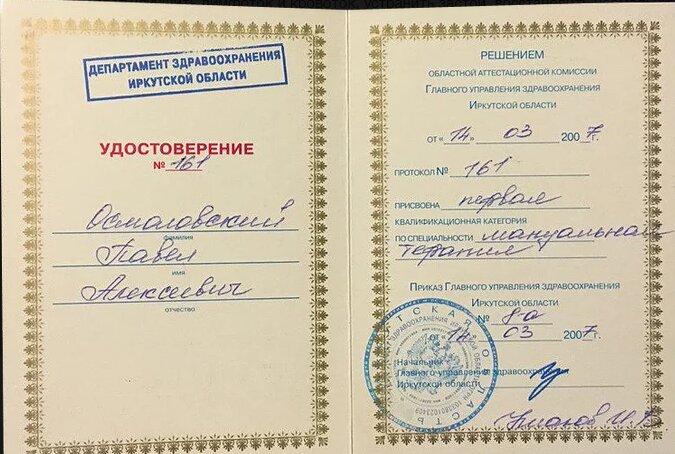 ДЕПАРТАМЕНТ ЗДРАВООХРАНЕНИЯ
ИРКУТСКОЙ ОБЛАСТИ
УДОСТОВЕРЕНИЕ
№ 161
Осмоловский
фамилия
Павел
имя
Алексеевич
отчество
РЕШЕНИЕМ
ОБЛАСТНОЙ АТТЕСТАЦИОННОЙ КОМИССИИ
ГЛАВНОГО УПРАВЛЕНИЯ ЗДРАВООХРАНЕНИЯ
ИРКУТСКОЙ ОБЛАСТИ
ОТ «14» 03 2007г.
ПРОТОКОЛ № 161
ПРИСВОЕНА первая
КВАЛИФИКАЦИОННАЯ КАТЕГОРИЯ
ПО СПЕЦИАЛЬНОСТИ мануальная
терапия
ПРИКАЗ ГЛАВНОГО УПРАВЛЕНИЯ ЗДРАВООХРАНЕНИЯ
ИРКУТСКОЙ ОБЛАСТИ
№ 8а
от 14 03 2007г.
Начальник
Главного управления здравоохранения
Иркутской области